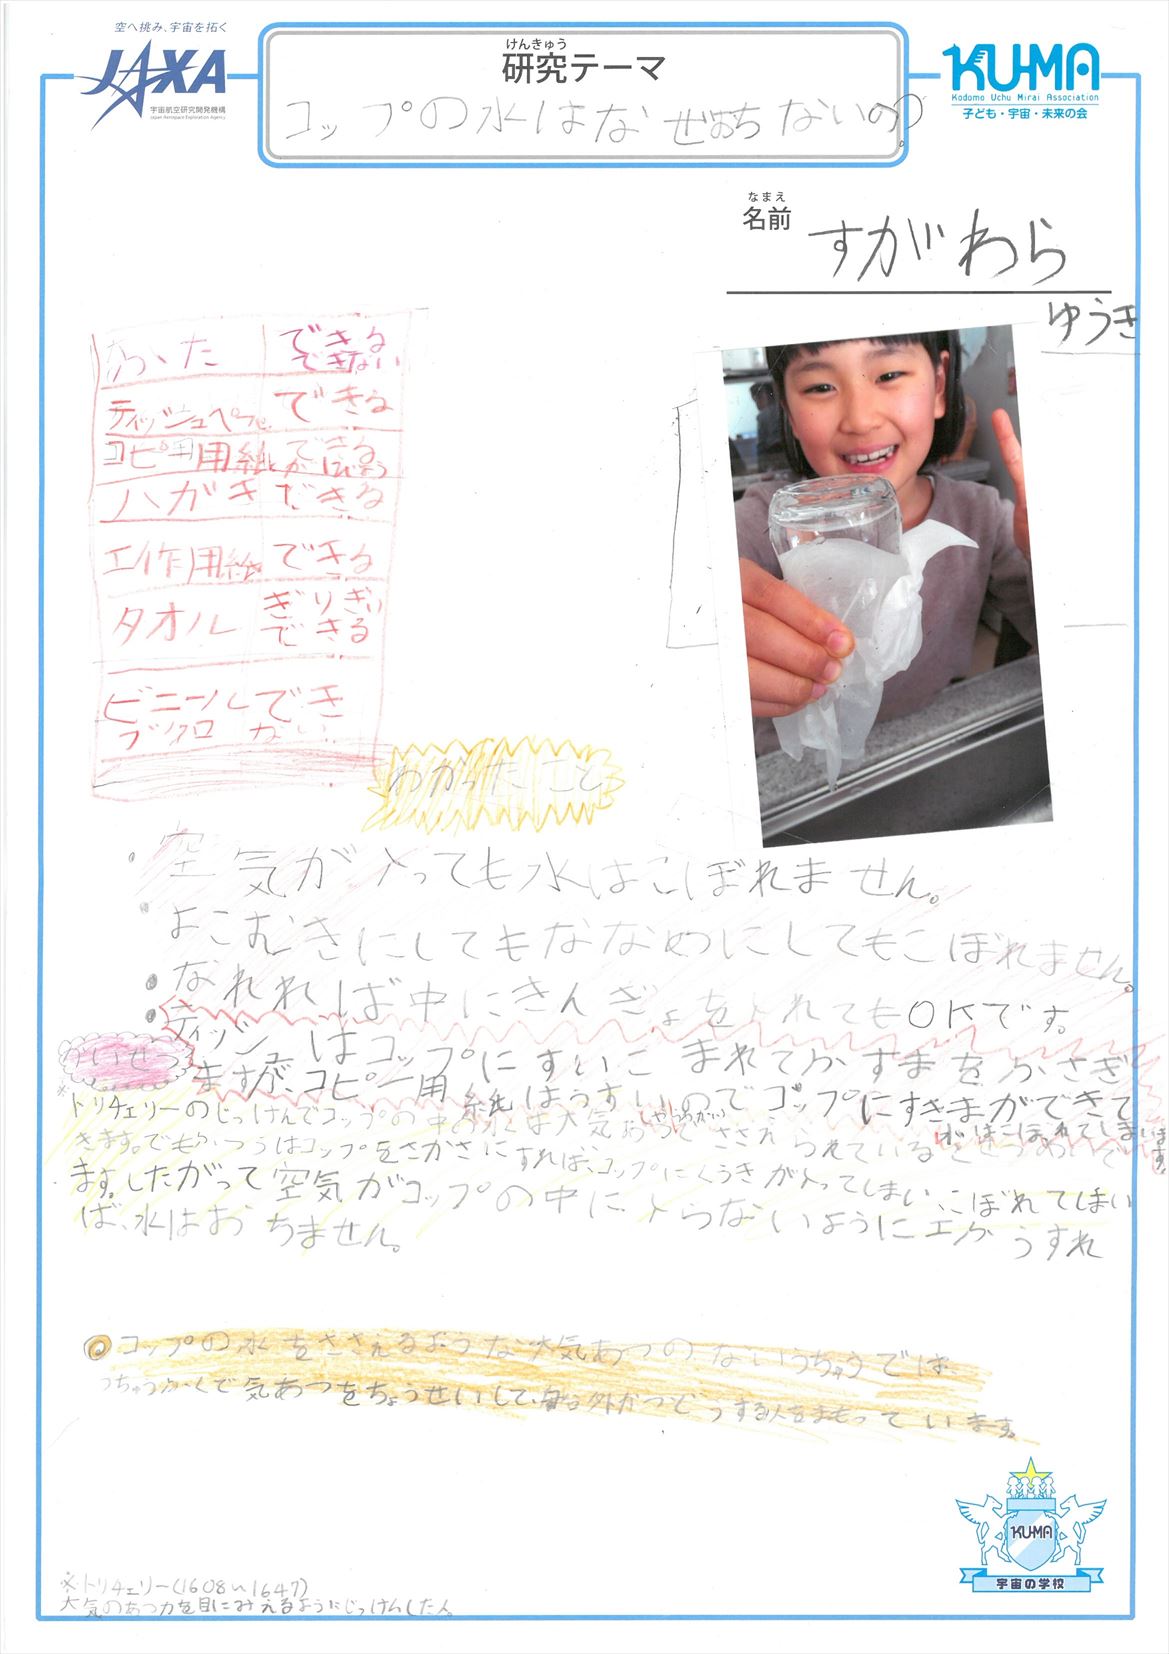 空へ挑み、宇宙を拓く
JAXA
宇宙航空研究開発機構
Japan Aerospace Exploration Agency
けんきゅう
研究テーマ
コップの水はなぜおちないの?
KU-MA
Kodomo Uchu Mirai Association
子ども・宇宙・未来の会
なまえ
名前
すがわら
ゆうき
できる
できない
ティッシュペーパー できる
コピー用紙 できる
ハガキ できる
工作用紙 できる
タオル ぎりぎり
できる
ビニール でき
ブクロ ない
わかったこと
・空気が入っても水はこぼれません。
・よこむきにしてもななめにしてもこぼれません。
・なれれば中にきんぎょを入れてもOKです。
・ティッシュはコップにすいこまれてかすまをふさぎ
ますが、コピー用紙はうすいのでコップにすきまができて
水はこぼれてしまいます。
かいせつ
※トリチェリーのじっけんでコップの中の水は大気あつでささえられているとせつめいで
きます。でもふつうはコップをさかさにすれば、コップにくうきが入ってしまい、こぼれてしまい
ます。したがって空気がコップの中に入らないように工夫すれ
ば、水はおちません。
◎コップの水をささえるような大気あつのないうちゅうでは、
うちゅうふくで気あつをちょうせいして、船外かつどうする人をまもっています。
KU-MA
宇宙の学校
※トリチェリー(1608〜1647)
大気のあつ力を目にみえるようにじっけんした人。